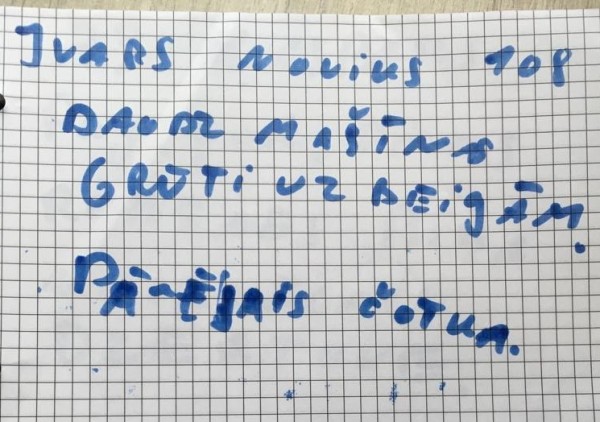 IVARS NOVIKS 108
DAUDZ MAŠĪNAS
GRŪTI UZ BEIGĀM.
PĀRĒJAIS ČOTKA.